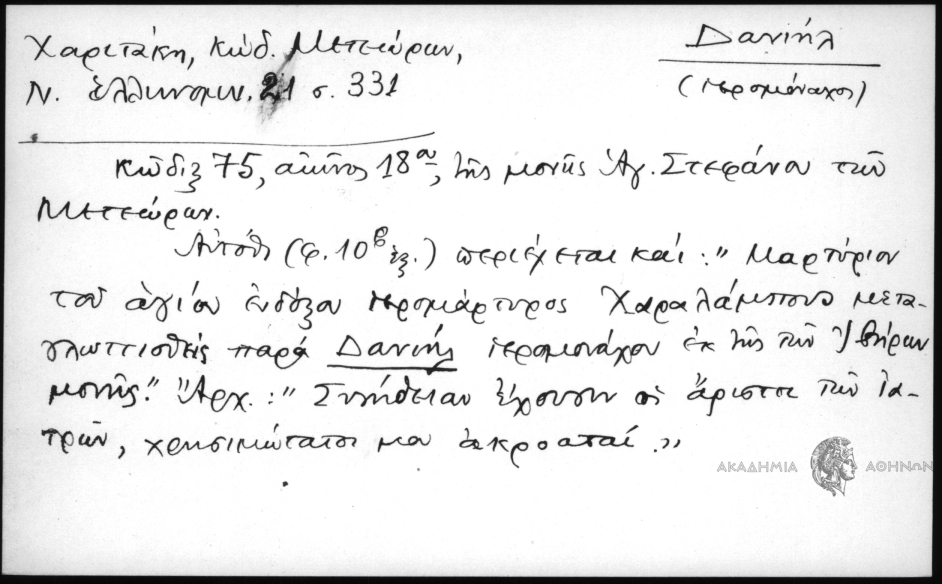 Χαριτάκη, κώδ. Μετεώρων,
Ν. Ἑλληνομν. 21 σ. 331
Δανιήλ
(ἱερομόναχος)
Κῶδιξ 75, αἰῶνος 18ου, τῆς μονῆς Ἁγ. Στεφάνου τῶν
Μετεώρων.
Αὐτόθι (φ. 10β ἑξ.) περιέχεται καί: "Μαρτύριον
τοῦ ἁγίου ἐνδόξου ἱερομάρτυρος Χαραλάμπους μετα-
γλωττισθὲς παρὰ Δανιὴλ ἱερομονάχου ἐκ τῆς τῶν Ἰβήρων
μονῆς." Ἀρχ.: "Συνήθειαν ἔχουσιν οἱ ἄριστοι τῶν ἰα-
τρῶν, χρησιμώτατοι μου ἀκροαταί."
ΑΚΑΔΗΜΙΑ ΑΘΗΝΩΝ